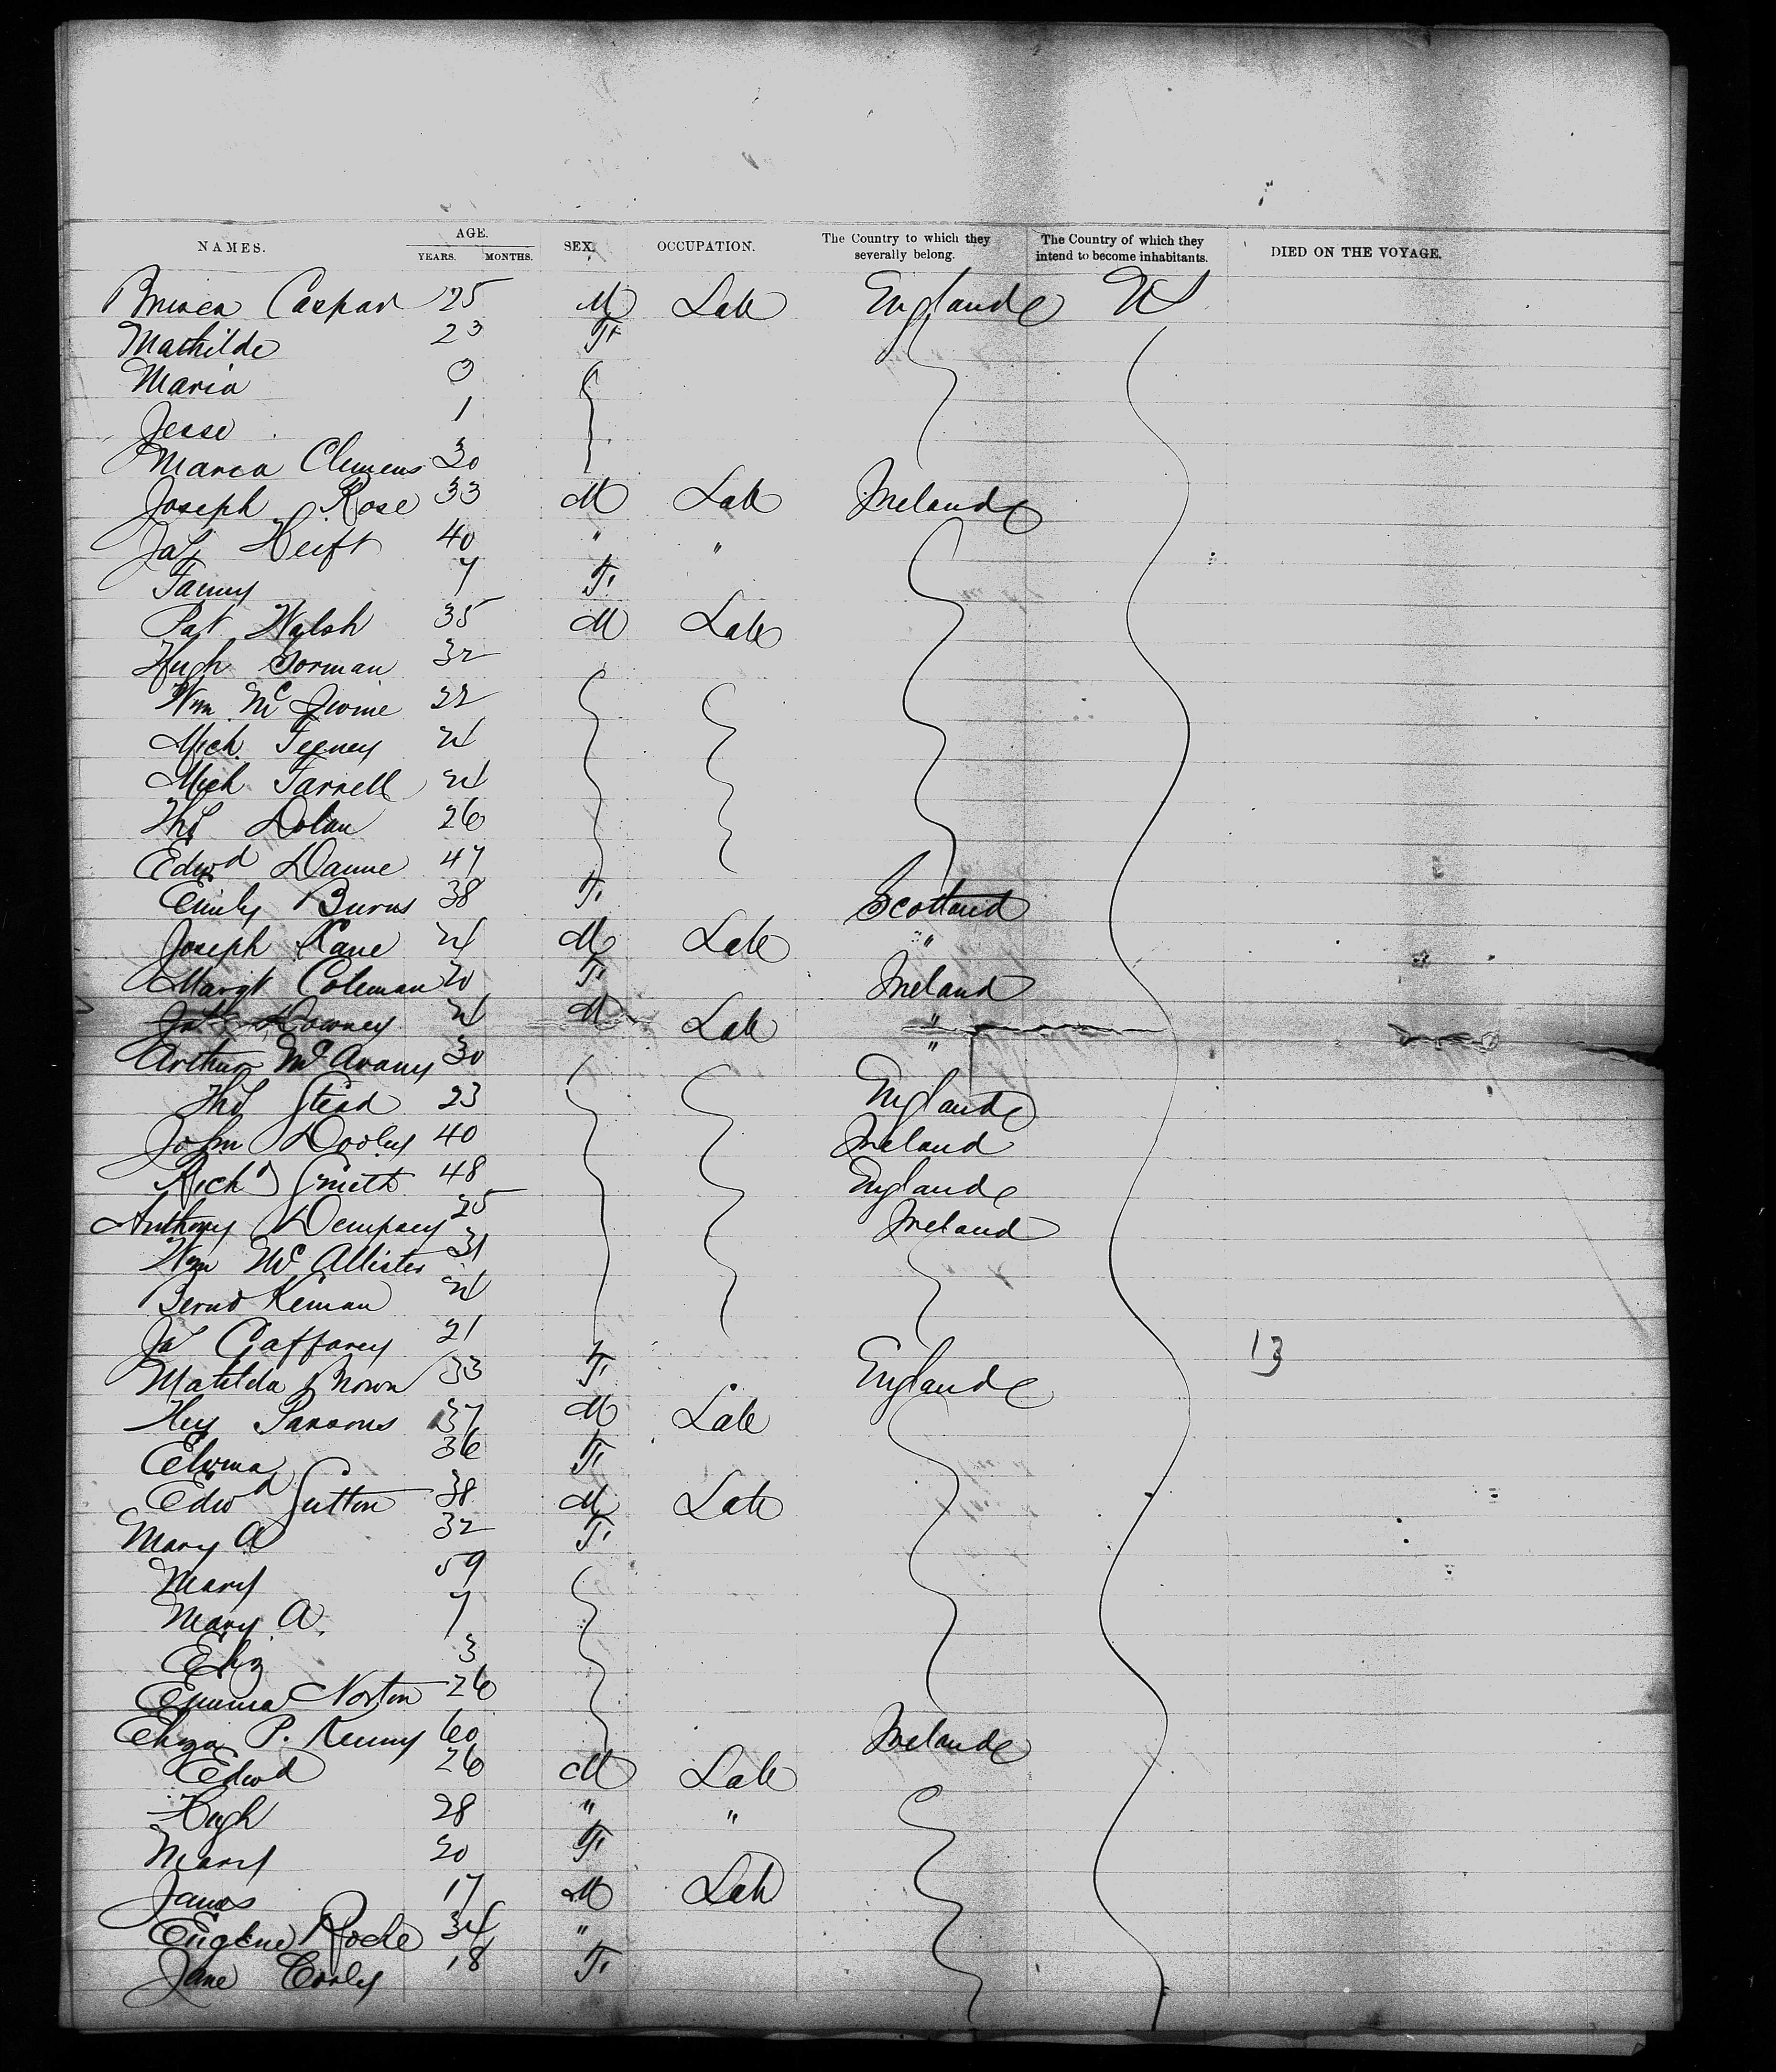 NAMES. AGE. YEARS. MONTHS. SEX. OCCUPATION. The Country to which they severally belong. The Country of which they intend to become inhabitants. DIED ON THE VOYAGE.
Caspar 25 M Lab England US
Mathilde 23 F
Maria
Jesse 1
Maria Clemens 30
Joseph Rose 33 M Lab Ireland
Jas Heift 40 " "
Fanny 7 F
Pat Walsh 35 M Lab
Hugh Gorman 32
Wm Mc 22
Mich. Feeney 24
Mich Farrell 24
Thos Dolan 26
Edwd Danne 47
Emily Burns 38 F Scotland
Joseph Kane 24 M Lab "
Margt Coleman 20 F Ireland
Jas Downey 24 M Lab "
Arthur Mc Avany 30 "
Thos Stead 23 England
John Dooley 40 Ireland
Richd Smith 48 England
Anthony Dempsey 25 Ireland
Wm Mc Allister 31
Bernd Kernan 24
Jas Caffarey 21
Matilda Brown 33 F England 13
Hy Parsons 37 M Lab
36 F
Edwd Sutton 38 M Lab
Mary A 32 F
Mary 59
Mary A. 7
Eliz 3
Emma Norton 26
Eliza P. Kenny 60 Ireland
Edwd 26 M Lab
Hugh 28 " "
Mary 20 F
James 17 M Lab
Eugene Roche 34 "
Jane 18 F